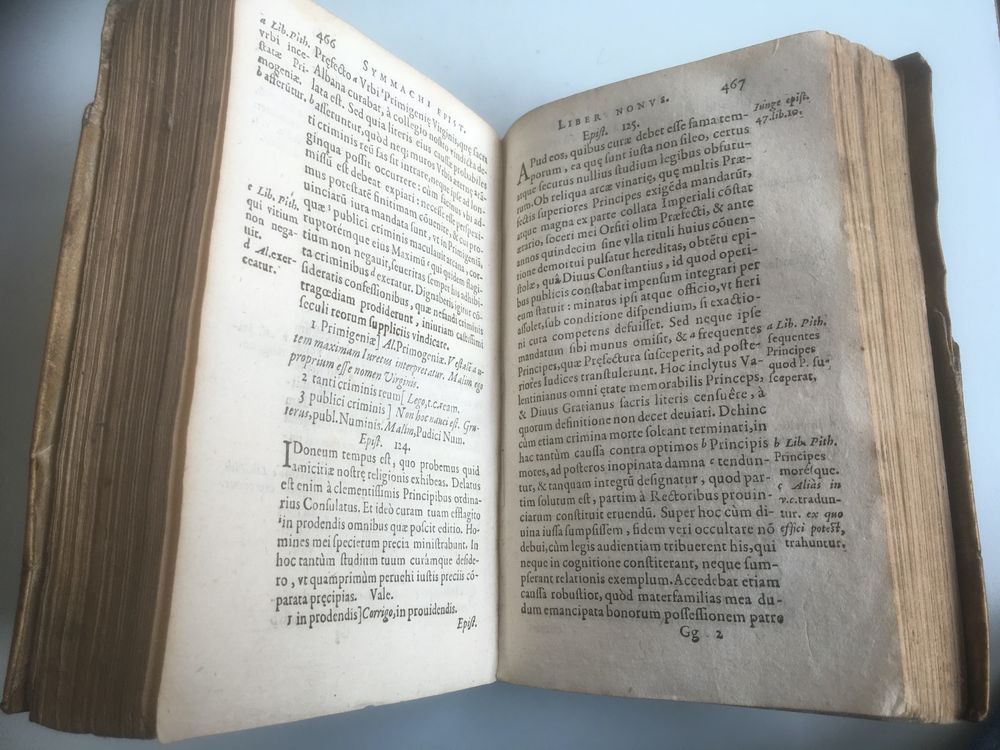 466
SYMMACHI EPIST.
a Lib. Pith.
vrbi ince-
statæ Pri-
mogeniæ.
b asserũtur.
Præfecto a Vrbi ¹Primigeniæ Virginis,quæ sacra
Albana curabat, à collegio nostro vindicta de-
lata est. Sed quia literis eius
b asseruntur, quòd neq; muros Vrbis æternæ
ti criminis reũ fas sit intrare, neque ipse ad lon-
ginqua possit occurrere: cùm facinus vbi ad-
missũ est debeat expiari: necesse esse perspexi-
mus potestatẽ finitimam cõuenire, & cui pro-
uinciarũ iura mandata sunt, vt in Primigeniã,
quæ ³ publici criminis maculauit arcana, cor-
ruptorémque eius Maximũ c qui quidem flagi-
tium non negauit, seueritas semper his adhibi-
ta criminibus d exeratur. Dignaberis igitur cõ-
sideratis confessionibus, quæ nefandi criminis
tragœdiam prodiderunt, iniuriam castissimi
seculi reorum suppliciis vindicate.
c Lib. Pith.
qui vitium
non nega-
uit.
d Al.exer-
ceatur.
1 Primigeniæ] Al.Primogeniæ. Vestale au-
tem maximam Iuretus interpretatur. Malim ego
proprium esse nomen Virginis.
2 tanti criminis reum] Lego,t.c.ream.
3 publici criminis] Non hoc nauci est. Gru-
terus,publ.Numinis. Malim,Pudici Num.
Epist. 124.
IDoneum tempus est, quo probemus quid
amicitiæ nostrę religionis exhibeas. Delatus
est enim à clementissimis Principibus ordina-
rius Consulatus. Et ideò curam tuam efflagito
¹in prodendis omnibus quæ poscit editio. Ho-
mines mei specierum precia ministrabunt. In
hoc tantùm studium tuum curámque deside-
ro, vt quamprimùm peruehi iustis preciis cō-
parata pręcipias. Vale.
1 in prodendis]Corrigo,in prouidendis.
Epist.
LIBER NONVS.
467
Epist. 125.
Iunge epist.
47.lib.10.
APud eos, quibus curæ debet esse fama tem-
porum, ea quę sunt iusta non sileo, certus
atque securus nullius studium legibus obfutu-
rum. Ob reliqua arcæ vinarię, quę multis Præ-
fectis superiores Principes exigẽda mandarũt,
atque magna ex parte collata Imperiali cõstat
ærario, soceri mei Orfiti olim Præfecti, & ante
annos quindecim sine vlla tituli huius cõuen-
tione demortui pulsatur hereditas, obtẽtu epi-
stolæ, quã Diuus Constantius, id quod operi-
bus publicis constabat impensum integrari per
eum statuit : minatus ipsi atque officio, vt fieri
assolet, sub conditione dispendium, si exactio-
ni cura competens defuisset. Sed neque ipse
mandatum sibi munus omisit, & a frequentes
Principes, quæ Præfectura susceperit, ad poste-
riores Iudices transtulerunt. Hoc inclytus Va-
lentinianus omni ętate memorabilis Princeps,
& Diuus Gratianus sacris literis censuêre, à
quorum definitione non decet deuiari. Dehinc
cùm etiam crimina morte soleant terminati, in
hac tantùm caussa contra optimos b Principis
mores, ad posteros inopinata damna c tendun-
tur, & tanquam integrũ designatur, quod par-
tim solutum est, partim à Rectoribus prouin-
ciarum constituit eruendũ. Super hoc cùm di-
uina iussa sumpsissem, fidem veri occultare nõ
debui, cùm legis audientiam tribuerent his, qui
neque in cognitione constiterant, neque sum-
pserant relationis exemplum. Accedebat etiam
caussa robustior, quòd materfamilias mea du-
dum emancipata bonorum possessionem patre
a Lib. Pith.
sequentes
Principes
quod P. su-
sceperat,
b Lib. Pith.
Principes
morésque.
c Alias in
v.c.tradun-
tur. ex quo
effici potest,
trahuntur.
Gg 2